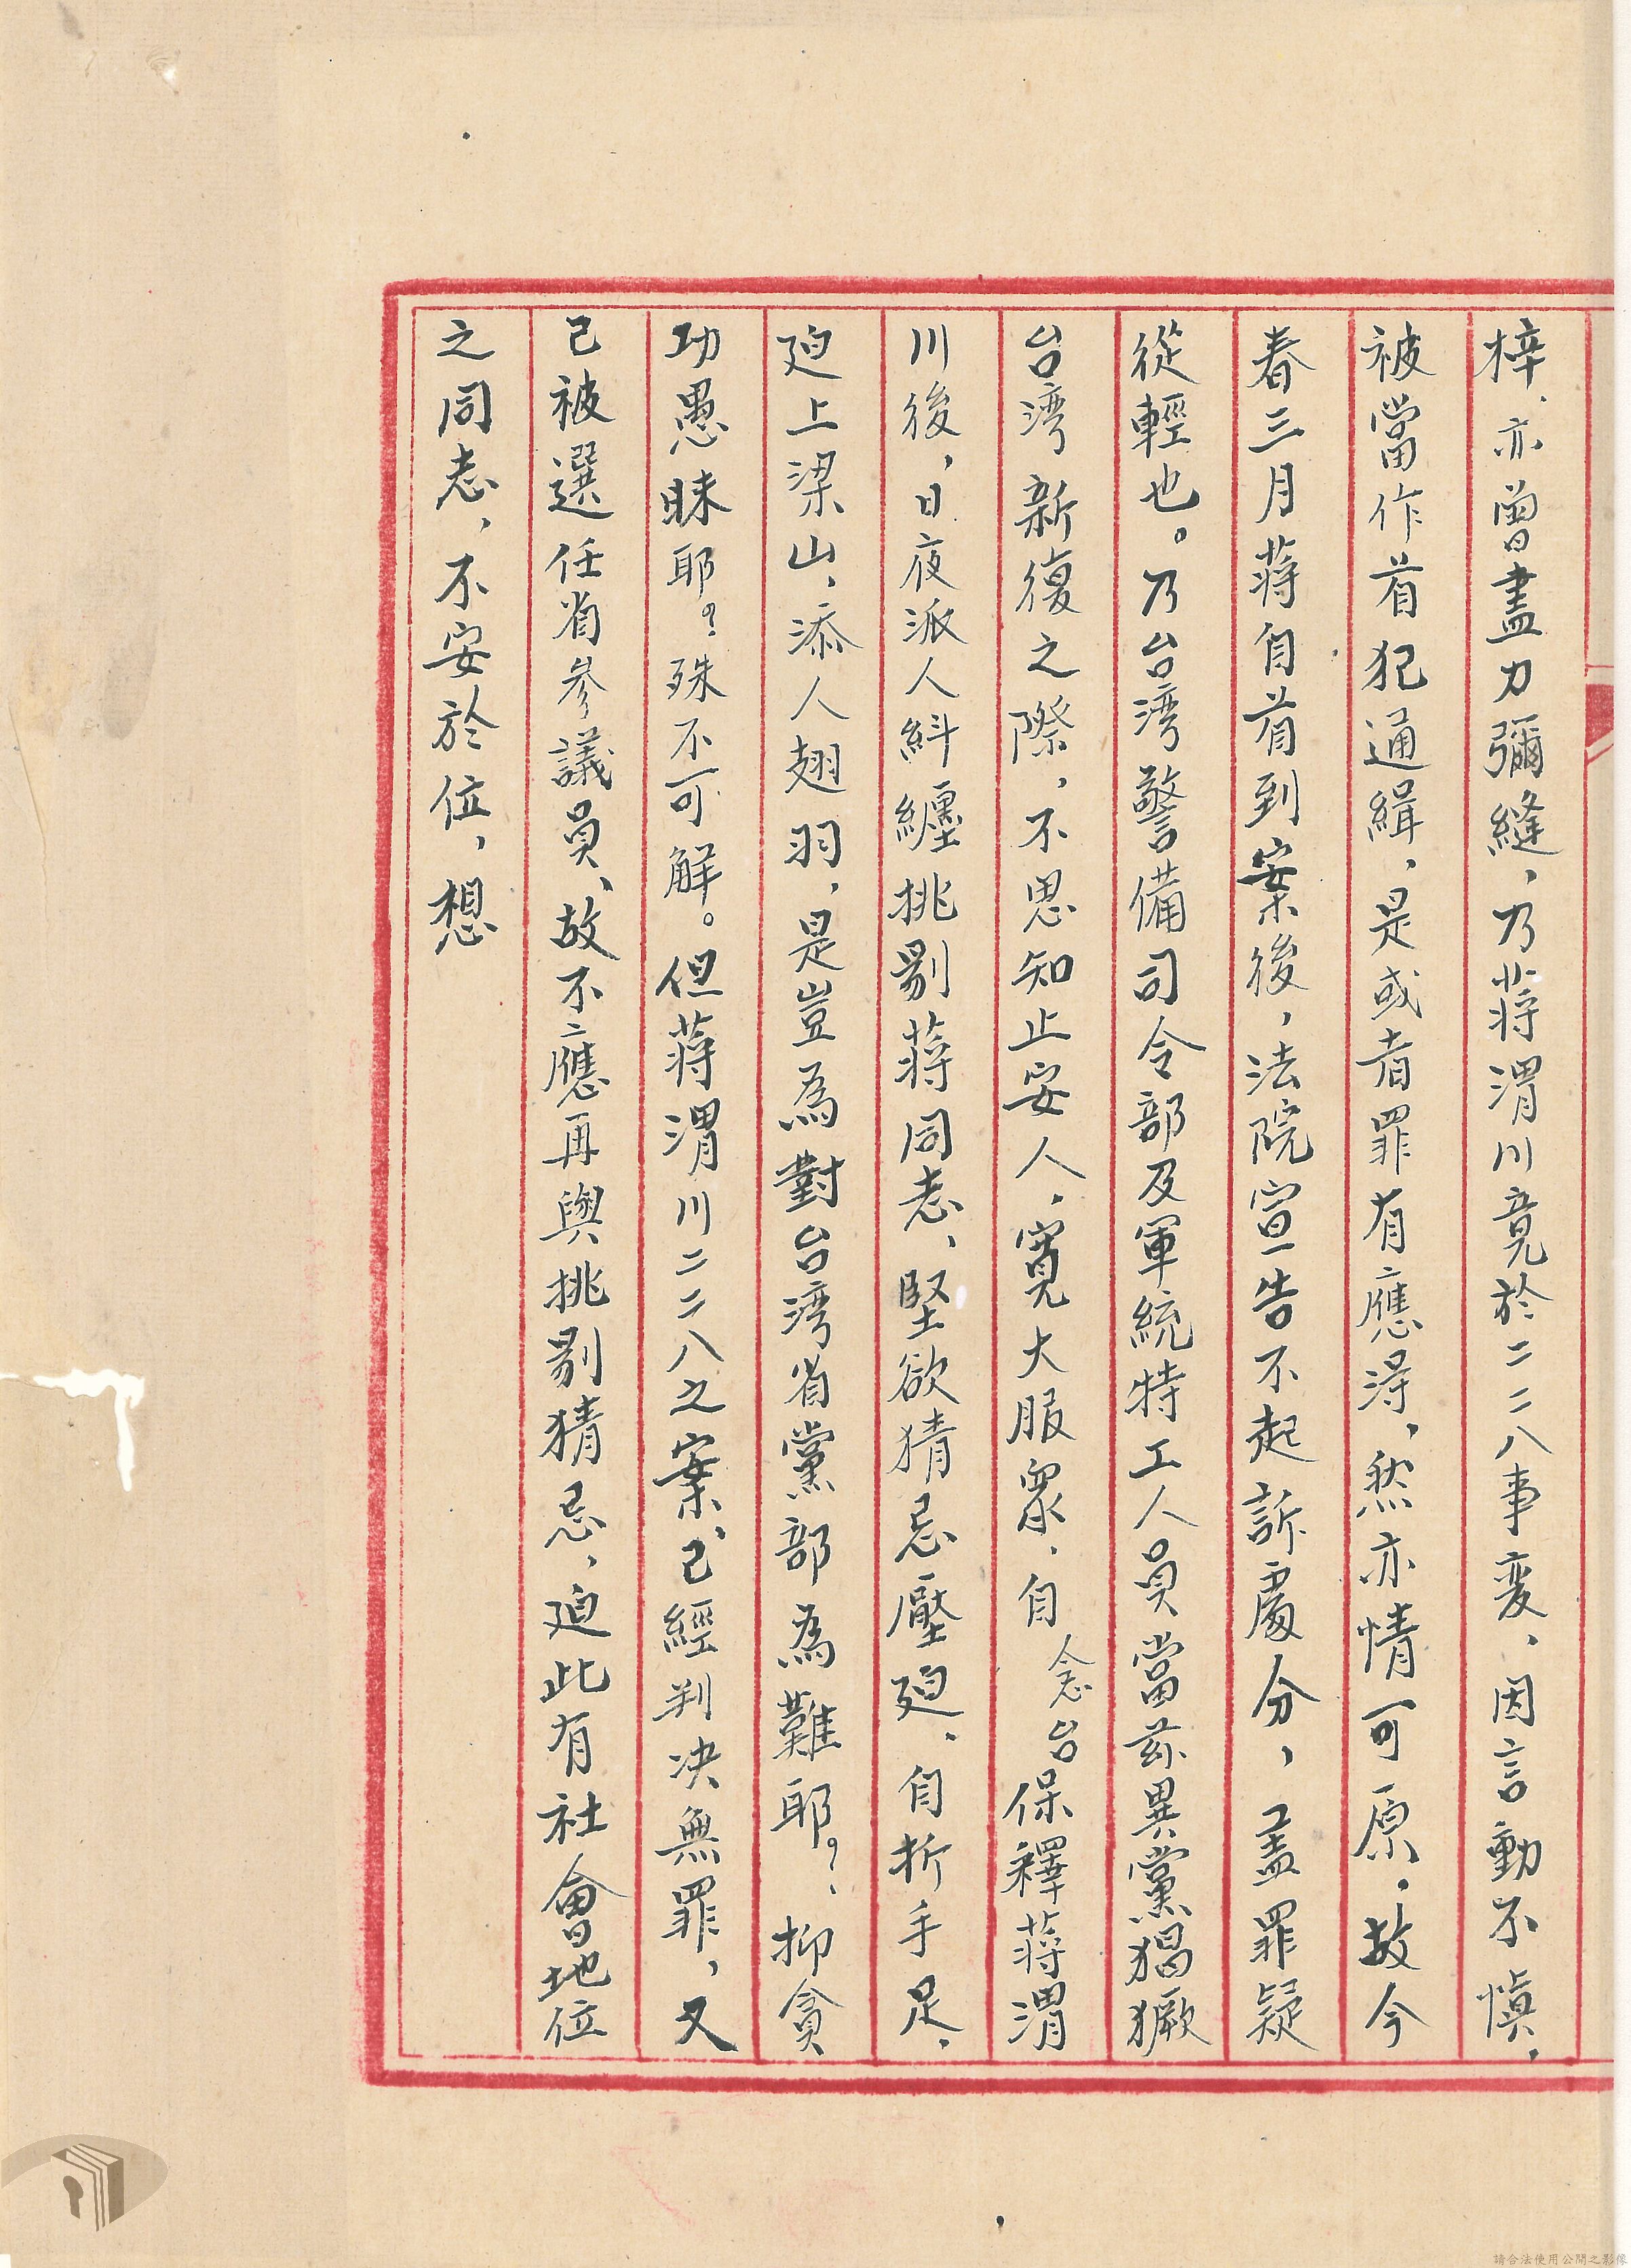 梓、亦曾盡力彌縫，乃蔣渭川竟於二二八事变，因言動不慎，
被當作首犯通緝，是或者罪有應得，然亦情可原。故今
春三月蔣自首到案後，法院宣告不起訴處分，盖罪疑
從輕也。乃台湾警備司令部及軍統特工人員當茲異黨猖獗
台湾新復之際，不思知止安人，寬大服眾，自 念台保釋蔣渭
川後，日夜派人糾纏挑剔蔣同志、堅欲猜忌壓廹、自折手足、
廹上梁山，添人翅羽，是豈為對台湾省黨部為難耶？抑貪
功愚昧耶？殊不可解。但蔣渭川二二八之案，已經判决無罪，又
已被選任省參議員、故不應再與挑剔猜忌，廹此有社會地位
之同志，不安於位，想
請合法使用公開之影像